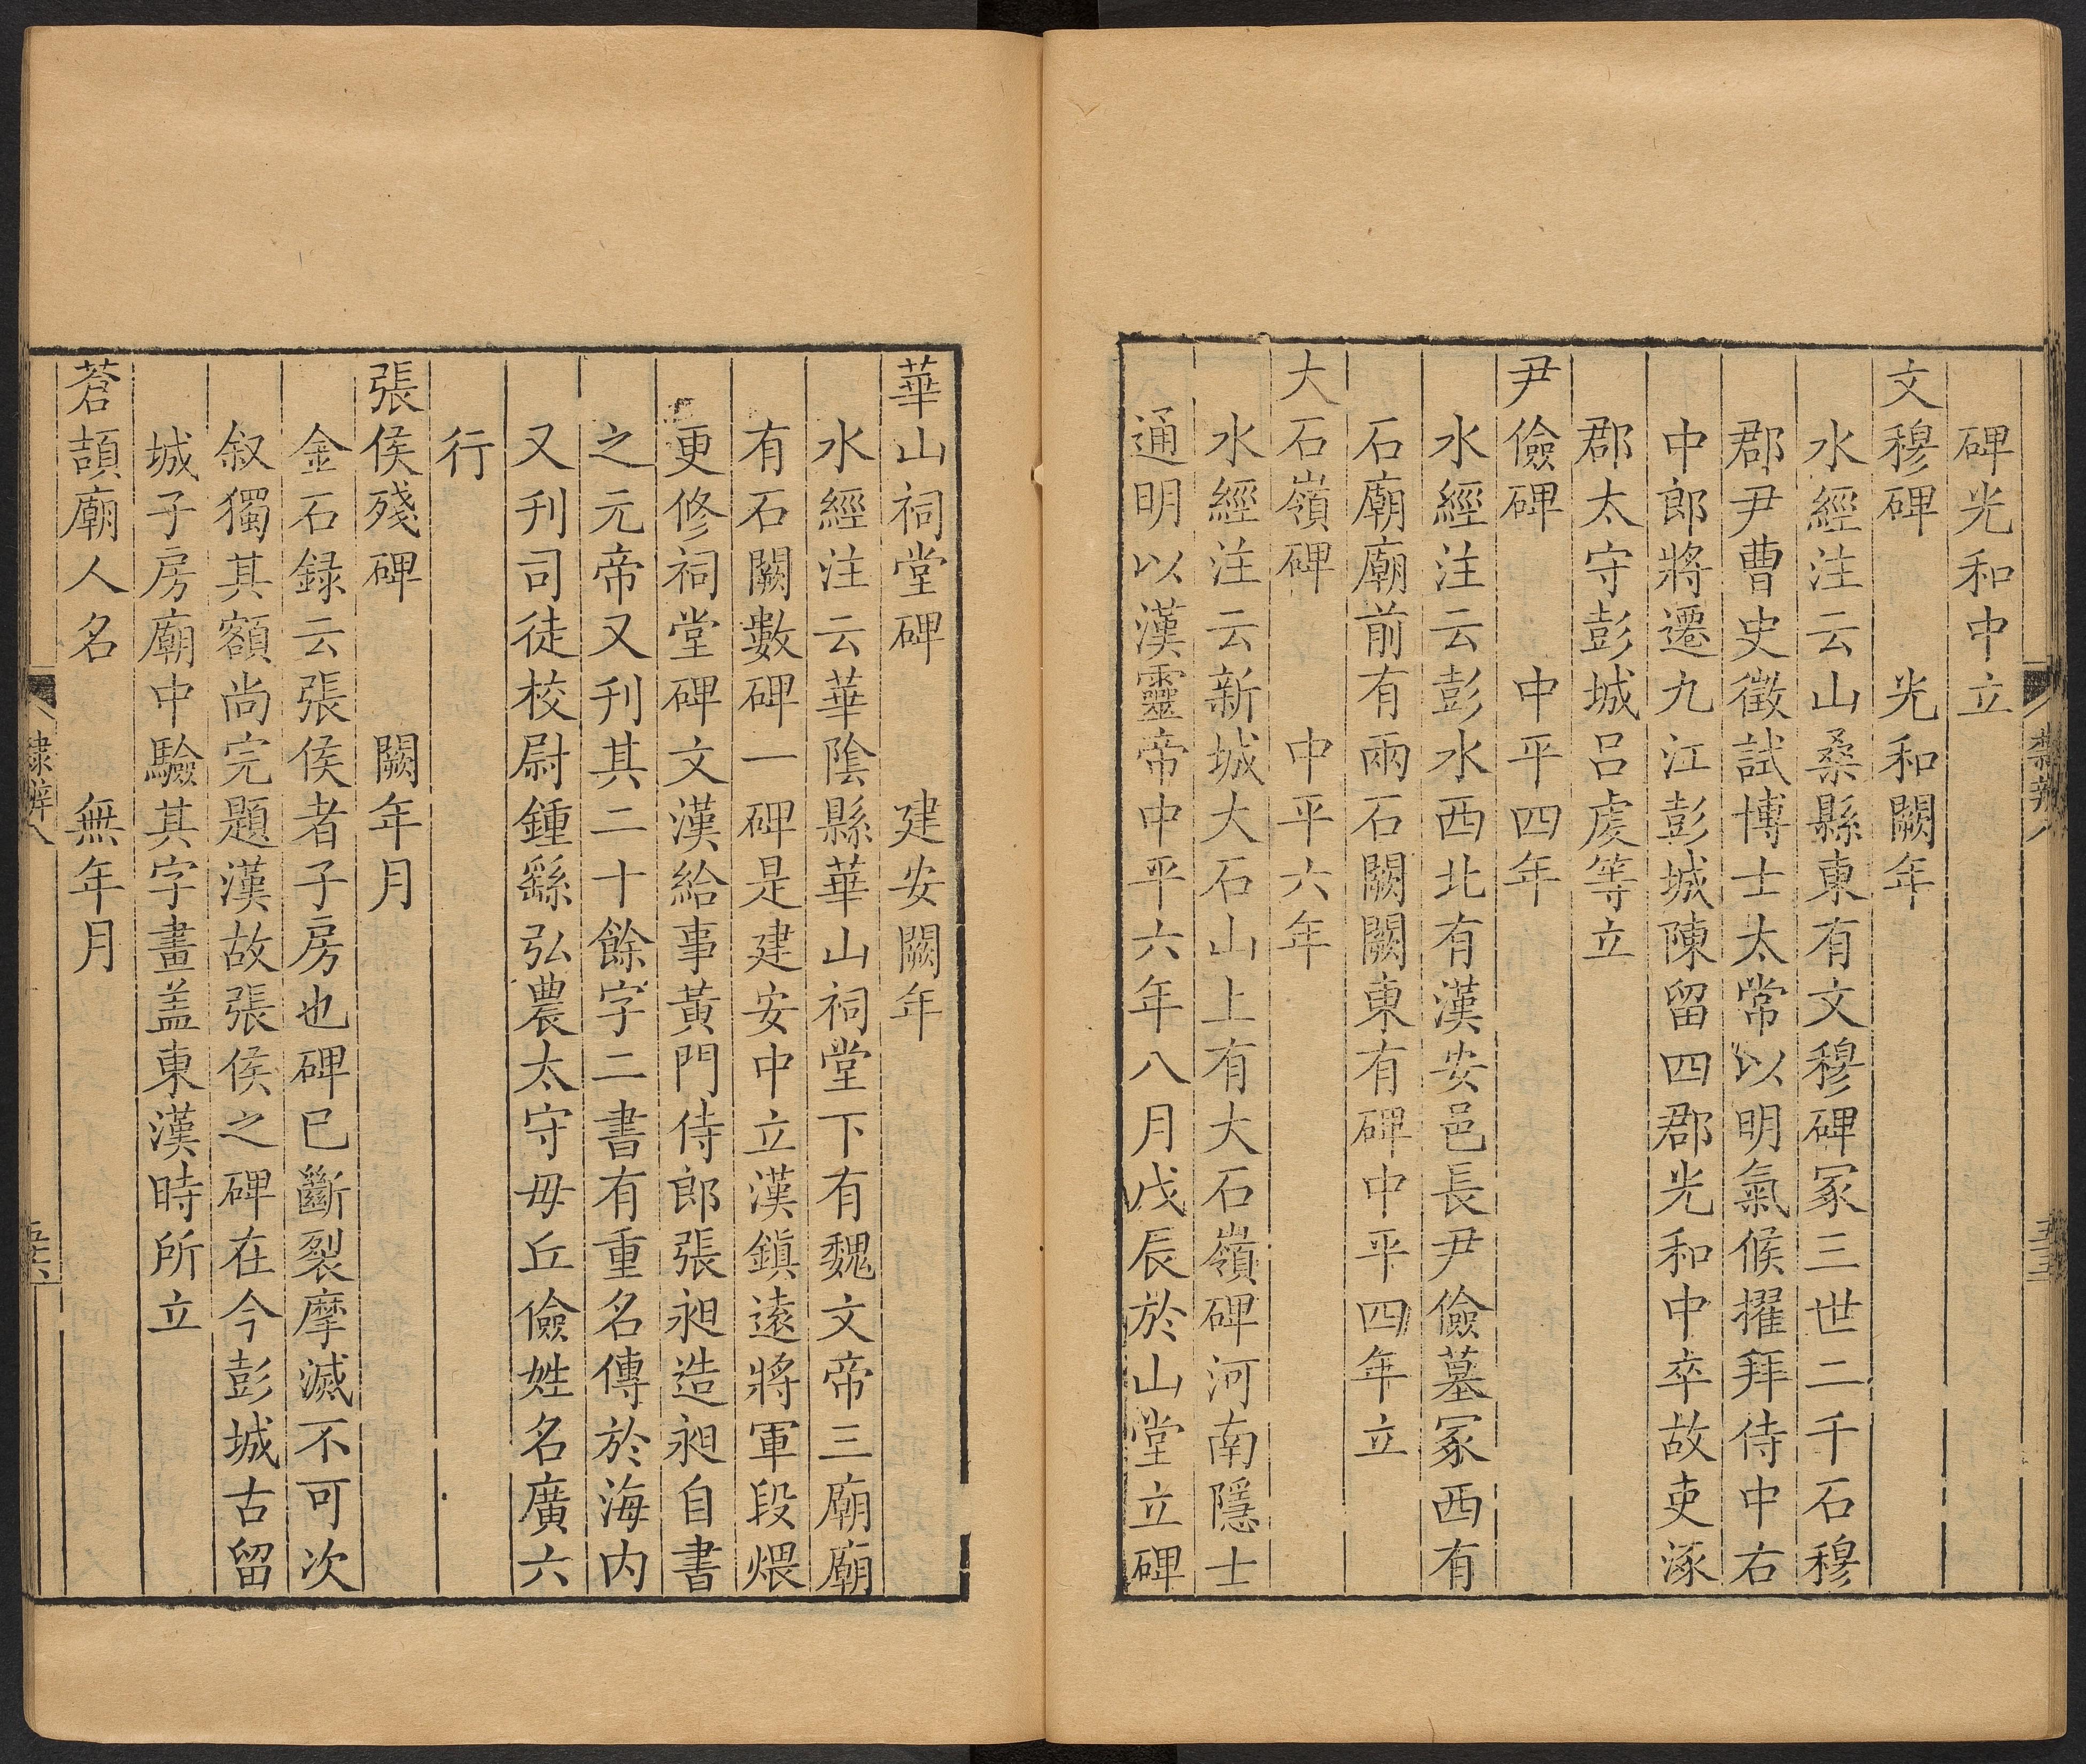 碑光和中立
文穆碑 光和闕年
水經注云山桑縣東有文穆碑冢三世二千石穆
郡尹曹史徵試博士太常以明氣候擢拜侍中右
中郎將遷九江彭城陳留四郡光和中卒故吏涿
郡太守彭城呂虔等立
尹儉碑 中平四年
水經注云彭水西北有漢安邑長尹儉墓冢西有
石廟廟前有兩石闕闕東有碑中平四年立
大石嶺碑 中平六年
水經注云新城大石山上有大石嶺碑河南隱士
通明以漢靈帝中平六年八月戊辰於山堂立碑
華山祠堂碑 建安闕年
水經注云華陰縣華山祠堂下有魏文帝三廟廟
有石闕數碑一碑是建安中立漢鎮遠將軍段煨
更修祠堂碑文漢給事黃門侍郎張昶造昶自書
之元帝又刊其二十餘字二書有重名傳於海内
又刊司徒校尉鍾繇弘農太守毋丘儉姓名廣六
行
張侯殘碑 闕年月
金石録云張侯者子房也碑已斷裂摩滅不可次
叙獨其額尚完題漢故張侯之碑在今彭城古留
城子房廟中驗其字畫盖東漢時所立
蒼頡廟人名 無年月
隸辨八
五十六